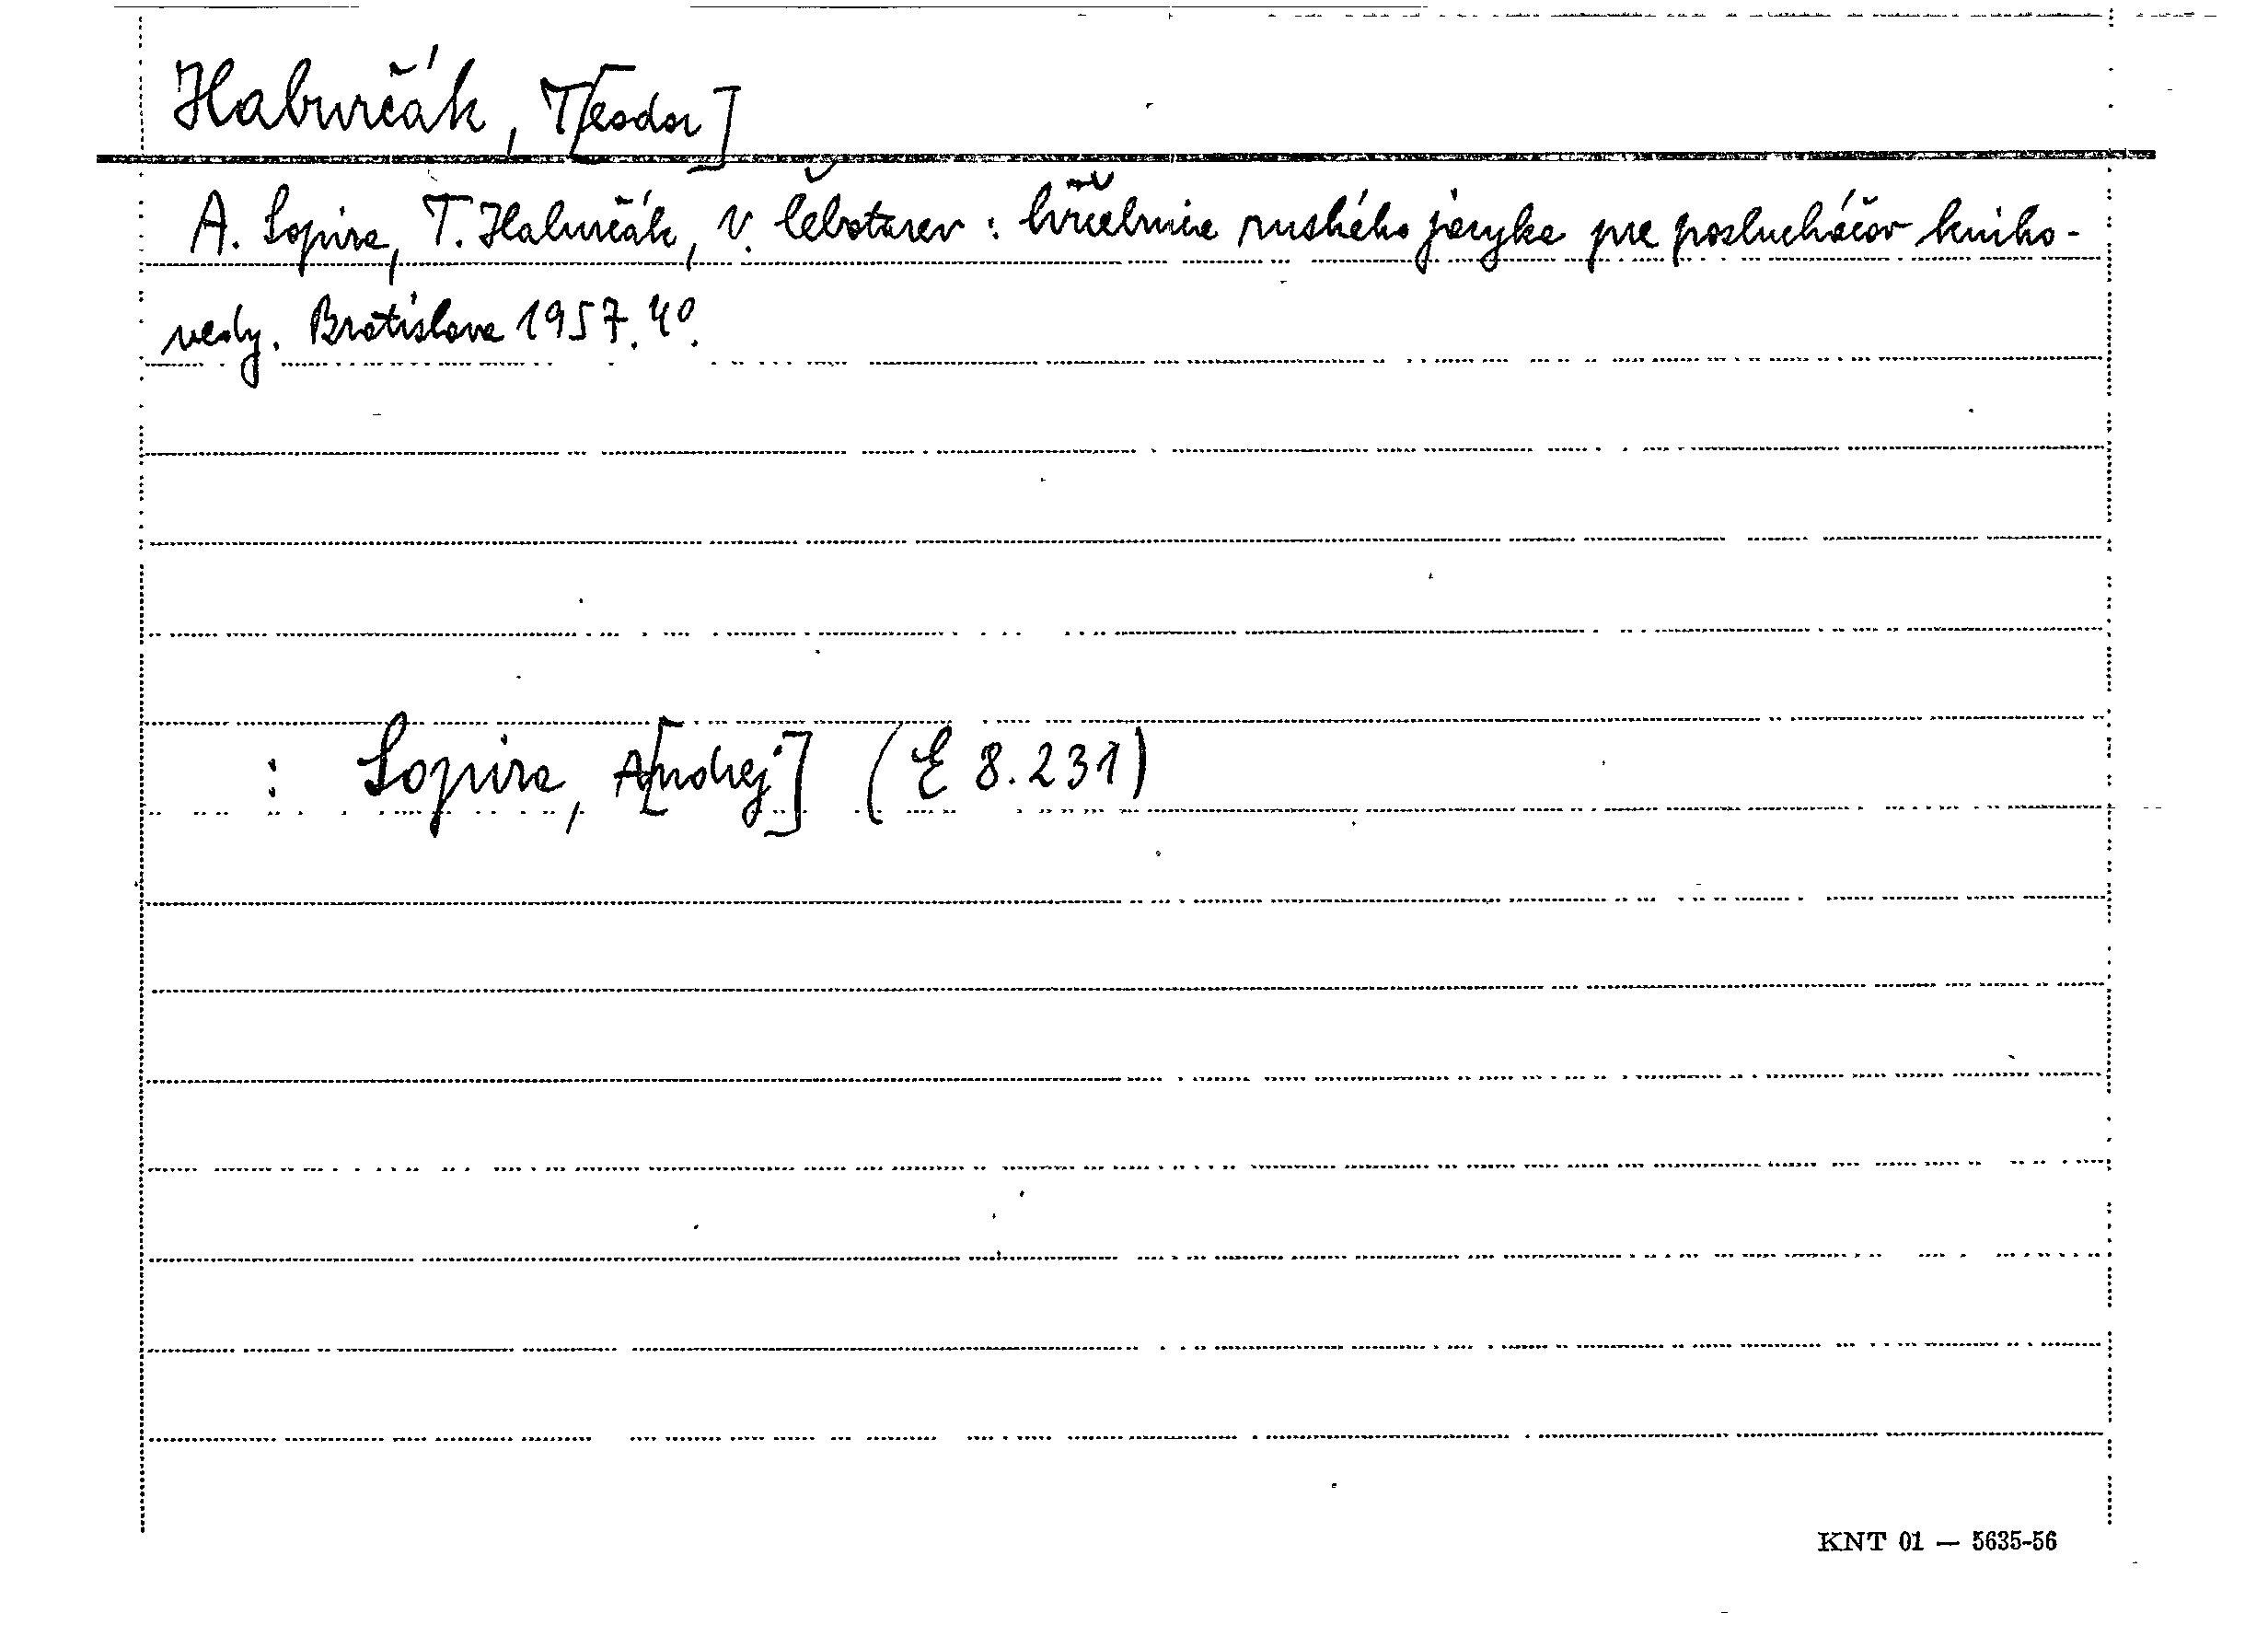 Haburčák, T[eodor]
A. Sopira, T. Haburčák, V. Čebotarev : Cvičebnica ruského jazyka pre poslucháčov kniho-
vedy. Bratislava 1957. 4°.
: Sopira, A[ndrej] (E 8.231)
KNT 01 — 5635-56